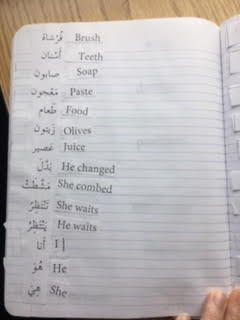 فُرْشاة Brush
أَسْنان Teeth
صابون Soap
مَعْجون Paste
طَعام Food
زَيتون Olives
عَصير Juice
بَدَّلَ He changed
مَشَّطَتْ She combed
تَنْتَظِرُ She waits
يَنْتَظِرُ He waits
أَنا I
هُوَ He
هِيَ She